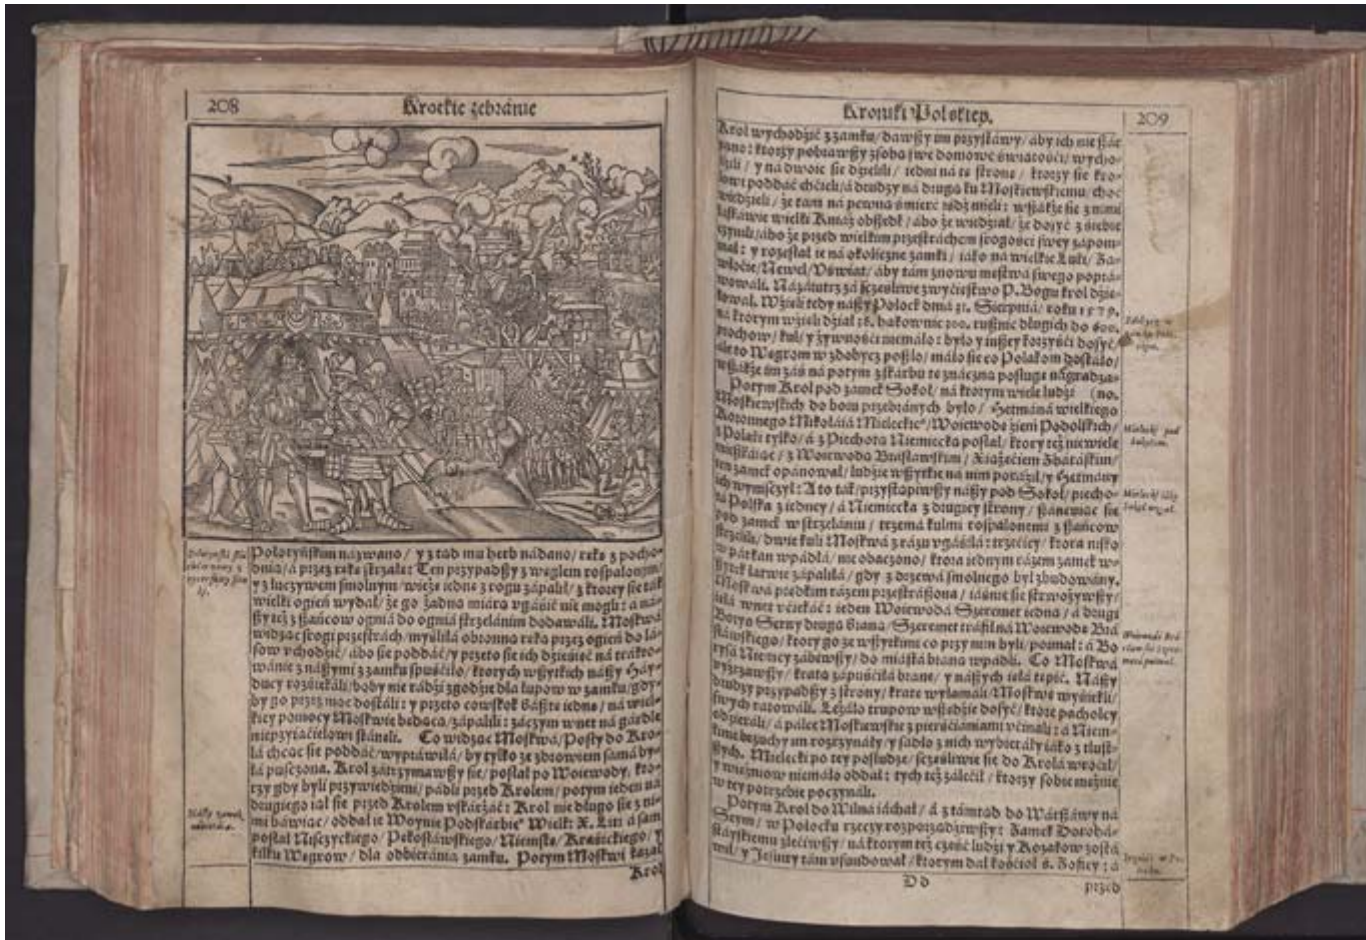 208 Krotkie zebránie
Połotyńskim názwano / y z tąd mu herb nádano / rękę z pocho-
dnią / á przez rękę strzałę: Ten przypadszy z węglem rospalonym /
y z łuczywem smolnym / wieżę iednę z rogu zápalił / z ktorey się ták
wielki ogień wydał / że go żadną miárą vgásić nie mogli: á ná-
szy też z száńcow ogniá do ogniá strzelánim dodawáli. Moskwá
widząc srogi przestrách / myśliłá obronną ręką przez ogień do lá-
sow vchodzić / ábo się poddáć / y przeto się ich dzieśięć ná tráktо-
wánie z nászymi z zamku spuśćiło / ktorych wszytkich nászy Háy-
ducy rozśiekáli / boby nie rádzi zgodzie dla łupow w zamku / gdy-
by go przez moc dostáli: y przeto
kiey pomocy Moskwie będącą / zápálili: záczym wnet ná gárdle
nieprzyiaćielowi stánęli. Co widząc Moskwá / Posły do Kro-
lá chcąc się poddáć / wypráwiłá / by tylko ze zdrowiem sámá by-
łá pusczoná. Krol zátrzymawszy się / posłał po Woiewody / kto-
rzy gdy byli przywiedzieni / pádli przed Krolem / potym ieden ná
drugiego iął się przed Krolem vskárżáć: Krol nie długo się z ni-
mi báwiąc / oddał ie Woynie Podskárbiᵉ Wielk: X. Lit: á sam
posłał Nisczyckiego / Pękosławskiego / Niemstę / Kráśickiego / y
kilku Węgrow / dla odbieránia zamku. Potym Moskwi kazał
Krol
Kroniki Polskiey. 209
Krol wychodzić z zamku / dawszy im przystáwy / áby ich nie szár
páno: ktorzy pobrawszy z sobą swe domowe świątośći / wycho-
dzili / y ná dwoie się dzielili / iedni ná tę stronę / ktorzy się Kro-
lowi poddáć chćieli / á drudzy ná drugą ku Moskiewskiemu / choć
wiedzieli / że tám ná pewną śmierć iśdź mieli: wszákże się z nimi
łáskáwie wielki Kniáź obszedł / ábo że wiedział / że dosyć z śiebie
czynili / ábo że przed wielkim przestráchem srogośći swey zápom-
niał: y rozesłał ie ná okoliczne zamki / iáko ná wielkie Łuki / Zá-
włoćie / Newel / Vświat / áby tám znowu męstwá swego popra-
wowáli. Názáiutrz zá sczęśliwe zwyćięstwo P. Bogu Krol dzię-
kował. Wzięli tedy nászy Połock dniá 31. Sierpniá / roku 1579.
ná ktorym wzięli dział 38. hákownic 300. rusznic długich do 600.
prochow / kul / y żywnośći niemáło: było y inszey korzyśći dosyć /
ále to Węgrom w zdobycz poszło / máło się co Polakom dostáło /
wszákże im záś ná potym z skárbu tę znáczną posługę nágradza-
Potym Krol pod zamek Sokoł / ná ktorym wiele ludzi (no.
Moskiewskich do boiu przebránych było / Hetmáná wielkiego
Koronnego Mikołáiá Mieleckiᵉ / Woiewodę źiem Podolskich /
z Polaki tylko / á z Piechotą Niemiecką posłał / ktory też niewiele
mieszkáiąc / z Woiewodą Brásławskim / Xiążęćiem Zbáráskim /
ten zamek opánował / ludzie wszytkie ná nim poráźił / y Hetmány
ich wymśćzył: A to ták / przystąpiwszy nászy pod Sokoł / piecho-
tá Polska z iedney / á Niemiecka z drugiey strony / szánćuiąc się
pod zamek w strzelániu / trzemá kulmi rospalonemi z száńcow
strzelili / dwie kuli Moskwá z rázu vgáśiłá: trzećiey / ktora nisko
w párkan wpádłá / nie obaczono / ktora iednym rázem zamek w-
szytek łatwie zápaliłá / gdy z drzewá smolnego był zbudowány.
Moskwá prędkim rázem przestrászona / iáśnie się strwożywszy /
ięłá wnet vćiekáć: ieden Woiewodá Szeremet iedną / á drugi
Borys Serny drugą braną / Szeremet tráfił ná Woiewodę Brá
sławskiego / ktory go ze wszytkimi co przy nim byli / poimał: á Bo
rysá Niemcy zábiwszy / do miástá braną wpádli. Co Moskwá
vyźrzawszy / kratę zápuśćiłá w bránę / y nászych ięłá topić. Nászy
drudzy przypadszy z strony / kratę wyłamáli / Moskwę wyśiekli /
swych rátowáli. Leżáło trupow wszędzie dosyć / ktore pácholcy
odzieráli / á pálce Moskiewskie z pierśćionkámi vćináli: á Niem-
kinie brzuchy im rozrzynáły / y sádło z nich wybieráły iáko z tłust-
szych. Mielecki po tey posłudze / sczęśliwie się do Krolá wroćił /
y więźniow niemáło oddał: tych też zálećił / ktorzy sobie mężnie
w tey potrzebie poczynáli.
Potym Krol do Wilná iáchał / á z támtąd do Wárszáwy ná
Seym / w Połocku rzeczy rozporządziwszy: Zamek Dorohá-
stáyskiemu zlećiwszy / ná ktorym też część ludzi y Kozakow zostá
wił / y Jesuity tám vfundował / ktorym dał kośćioł ś. Zofiey: á
Dd przed